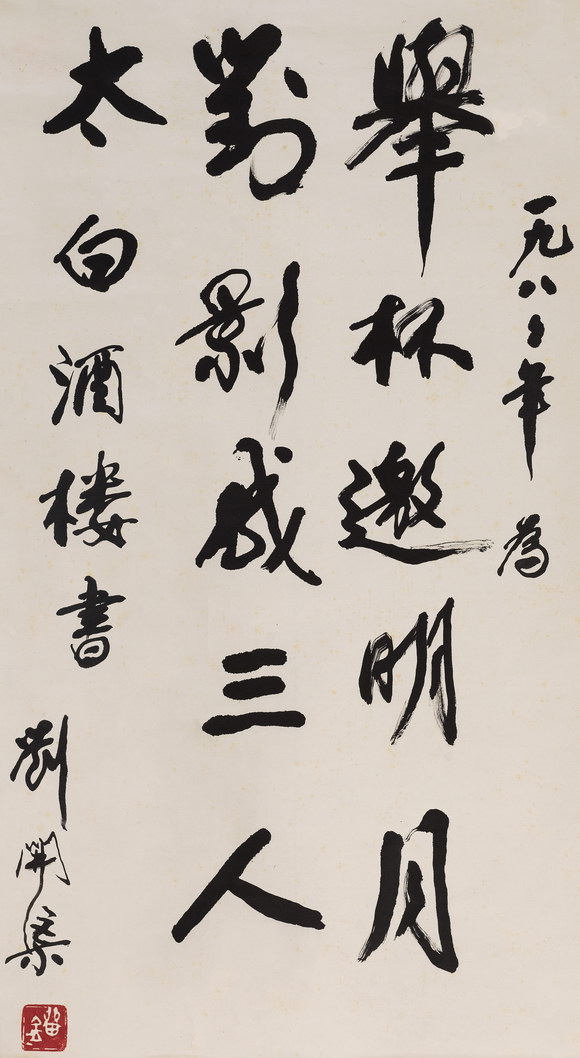 一九八 年 為
舉杯邀明月
對影成三人
太白酒楼書
劉開渠